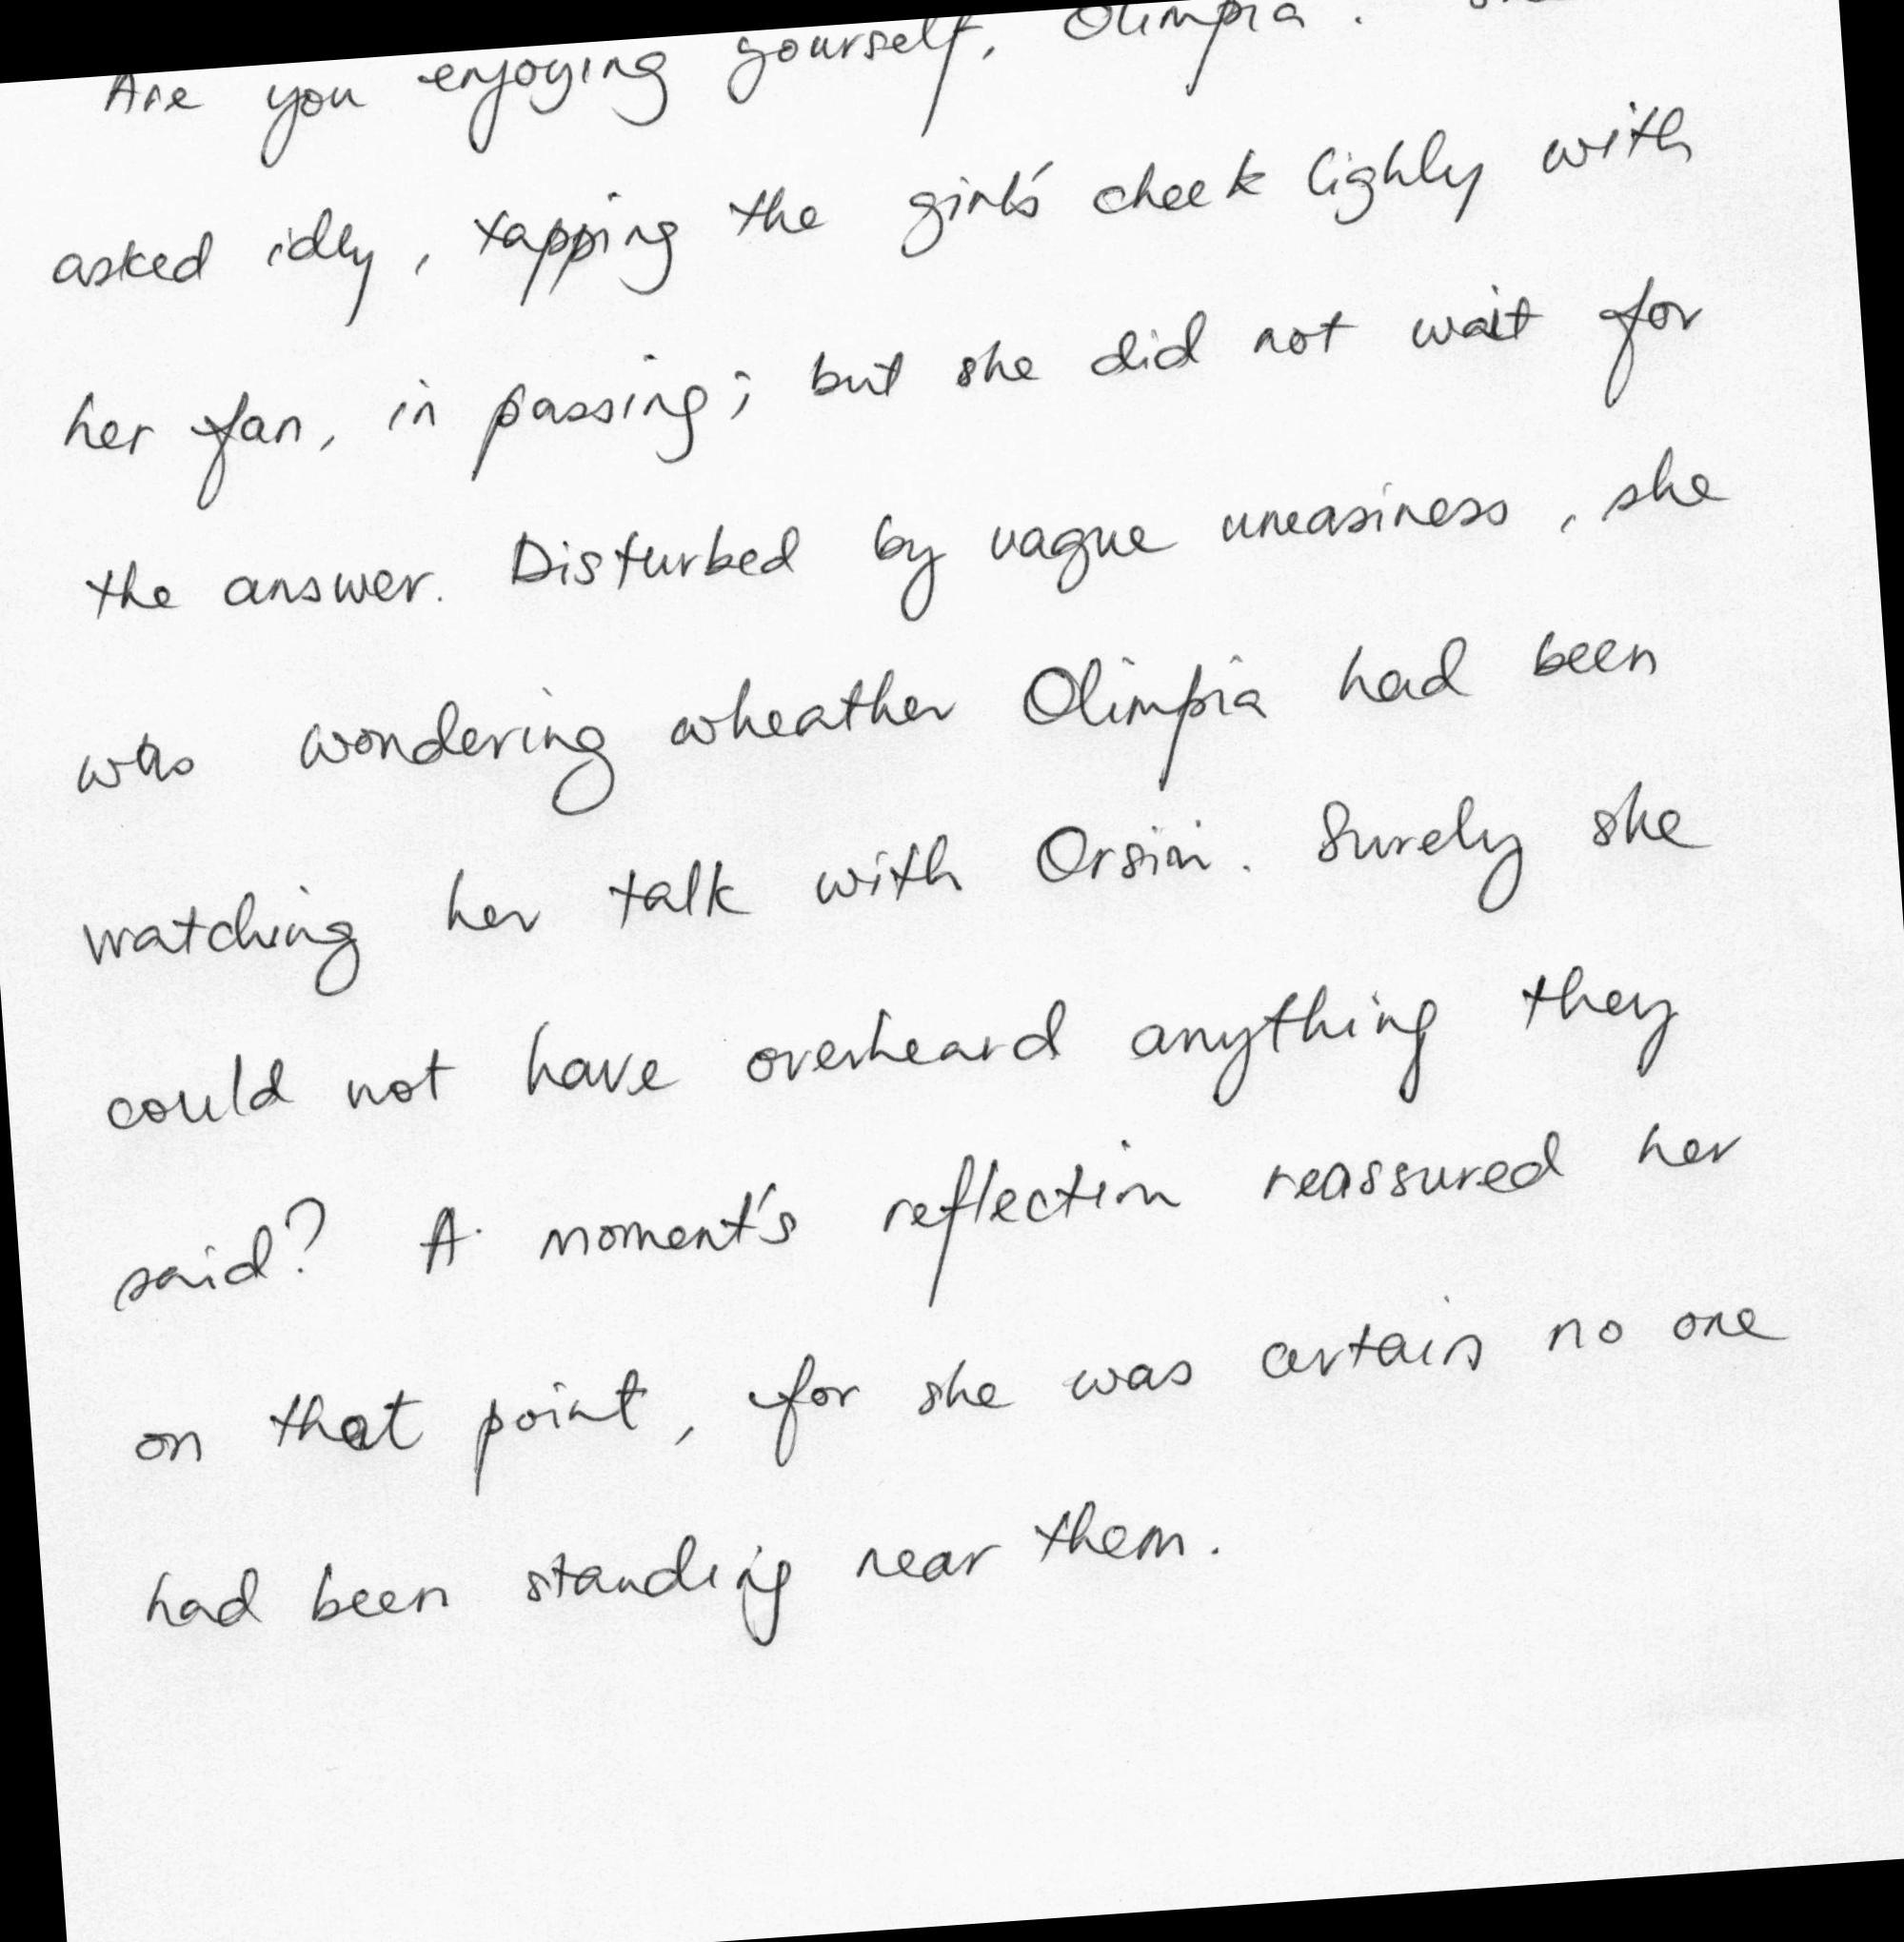 Are you enjoying yourself, Olimpia.
asked idly, tapping the girl's cheek lighly with
her fan, in passing; but she did not wait for
the answer. Disturbed by vague uneasiness, she
was wondering wheather Olimpia had been
watching her talk with Orsini. Surely she
could not have overheard anything they
said? A moment's reflection reassured her
on that point, for she was certain no one
had been standing near them.